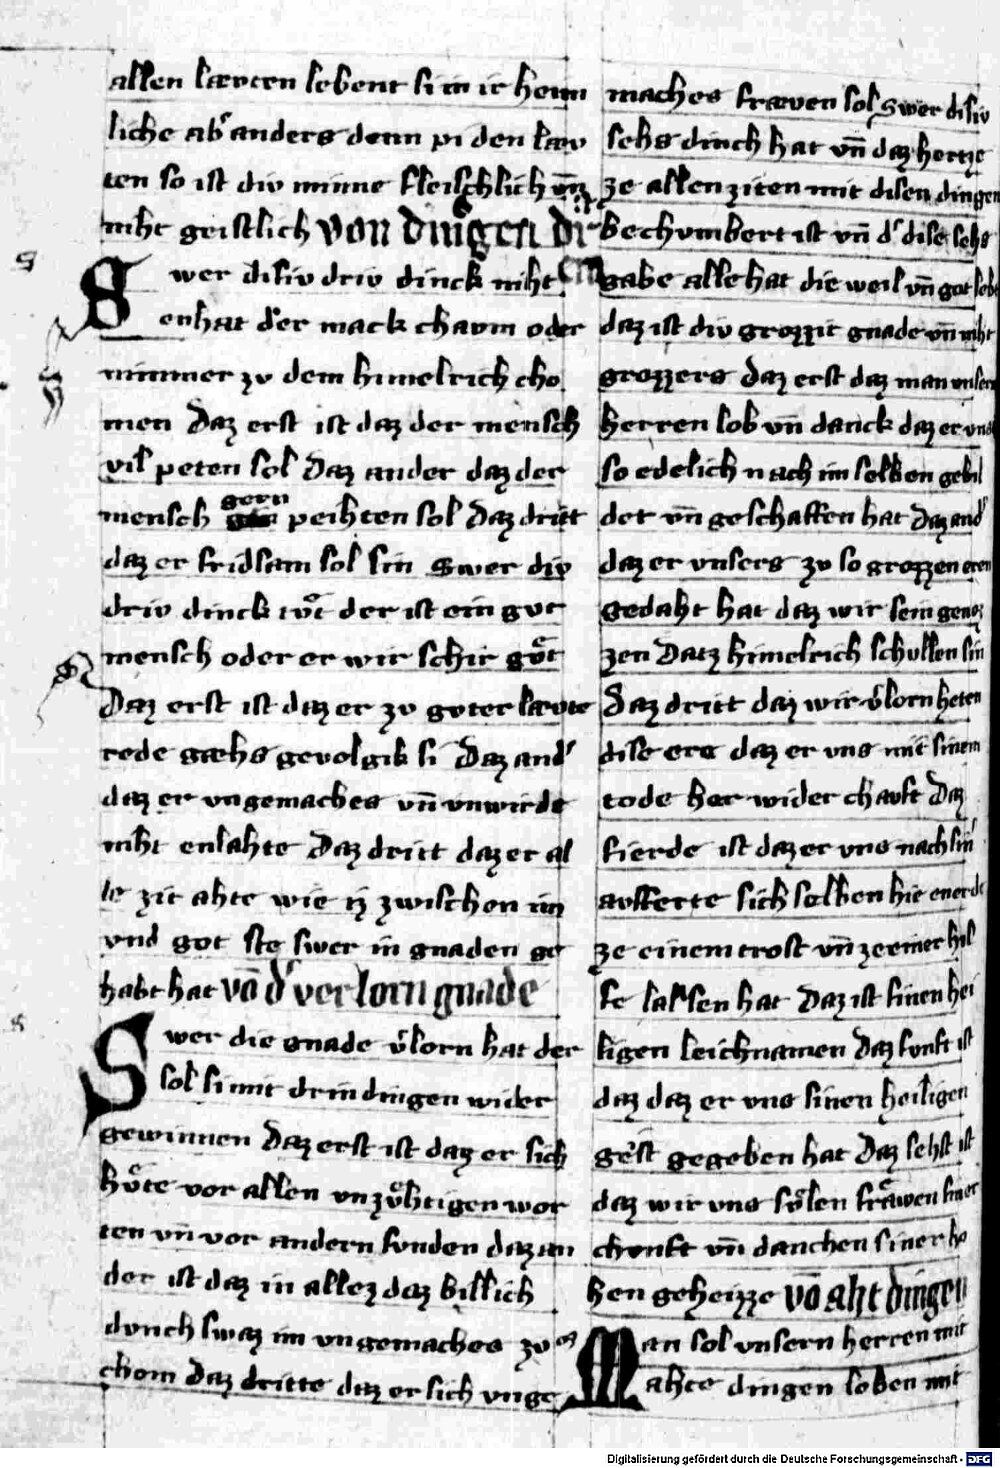 allen læwten lebent si in ir heim
liche ab᾽ anders denn pi den læw
ten so ist div minne fleischlich vn̄
niht geistlich von dingen dr
ein
Swer disiv driv dinck niht
enhat d᾽er mack chavm oder
nimmer zv dem himelrich cho
men Daz erst ist daz der mensch
vil peten sol Daz ander daz der
mensch gern peihten sol Daz dritt
daz er fridsam sol sin Swer div
driv dinck tvͦt der ist ein gvt
mensch oder er wir schir gvͦt
Daz erst ist daz er zv gvter lævte
rede gæhs gevolgik si Daz and᾽
daz er vngemaches vn̄ vnwirde
niht enlahte Daz dritt daz er al
le zit ahte wie ez zwischen im
vnd got ste swer in gnaden ge
habt hat vō d᾽ verlorn gnade
Swer die gnade v᾽lorn hat der
sol si mit drin dingen wider
gewinnen Daz erst ist daz er sich
hvͤte vor allen vnzvͤhtigen wor
ten vn̄ vor andern svnden daz an
der ist daz in allez daz billich
dvnch swaz im vngemaches zv
chom Daz dritte daz er sich vnge
maches fræwen sol Swer disiv
sehs dinch hat vn̄ daz hertze
ze allen ziten mit disen dingen
bechvmbert ist vn̄ d᾽ dise sehs
gabe alle hat die weil vn̄ got lebt
daz ist div grozzit gnade vn̄ niht
grozzers Daz erst daz man vnsern
herren lob vn̄ danck daz er vns
so edelich nach im selben gebil
det vn̄ geschaffen hat Daz and᾽
daz er vnsers zv so grozzen eren
gedaht hat daz wir sein genoz
zen Datz himelrich schvllen sin
Daz dritt daz wir v᾽lorn heten
dise ere daz er vns mit sinem
tode her wider chavft Daz
fierde ist daz er vns nach sin᾽
avfferte sich selben hie en erde
ze einem trost vn̄ ze einer hil
fe lassen hat Daz ist sinen hei
ligen leichnamen Daz fvnft ist
daz daz er vns sinen heiligen
geist gegeben hat Daz sehst ist
daz wir vns svͤlen fræwen siner
chvnft vn̄ danchen siner ho
hen geheizze vō aht dingen
Man sol vnsern herren mit
ahte dingen loben mit
Digitalisierung gefördert durch die Deutsche Forschungsgemeinschaft - DFG